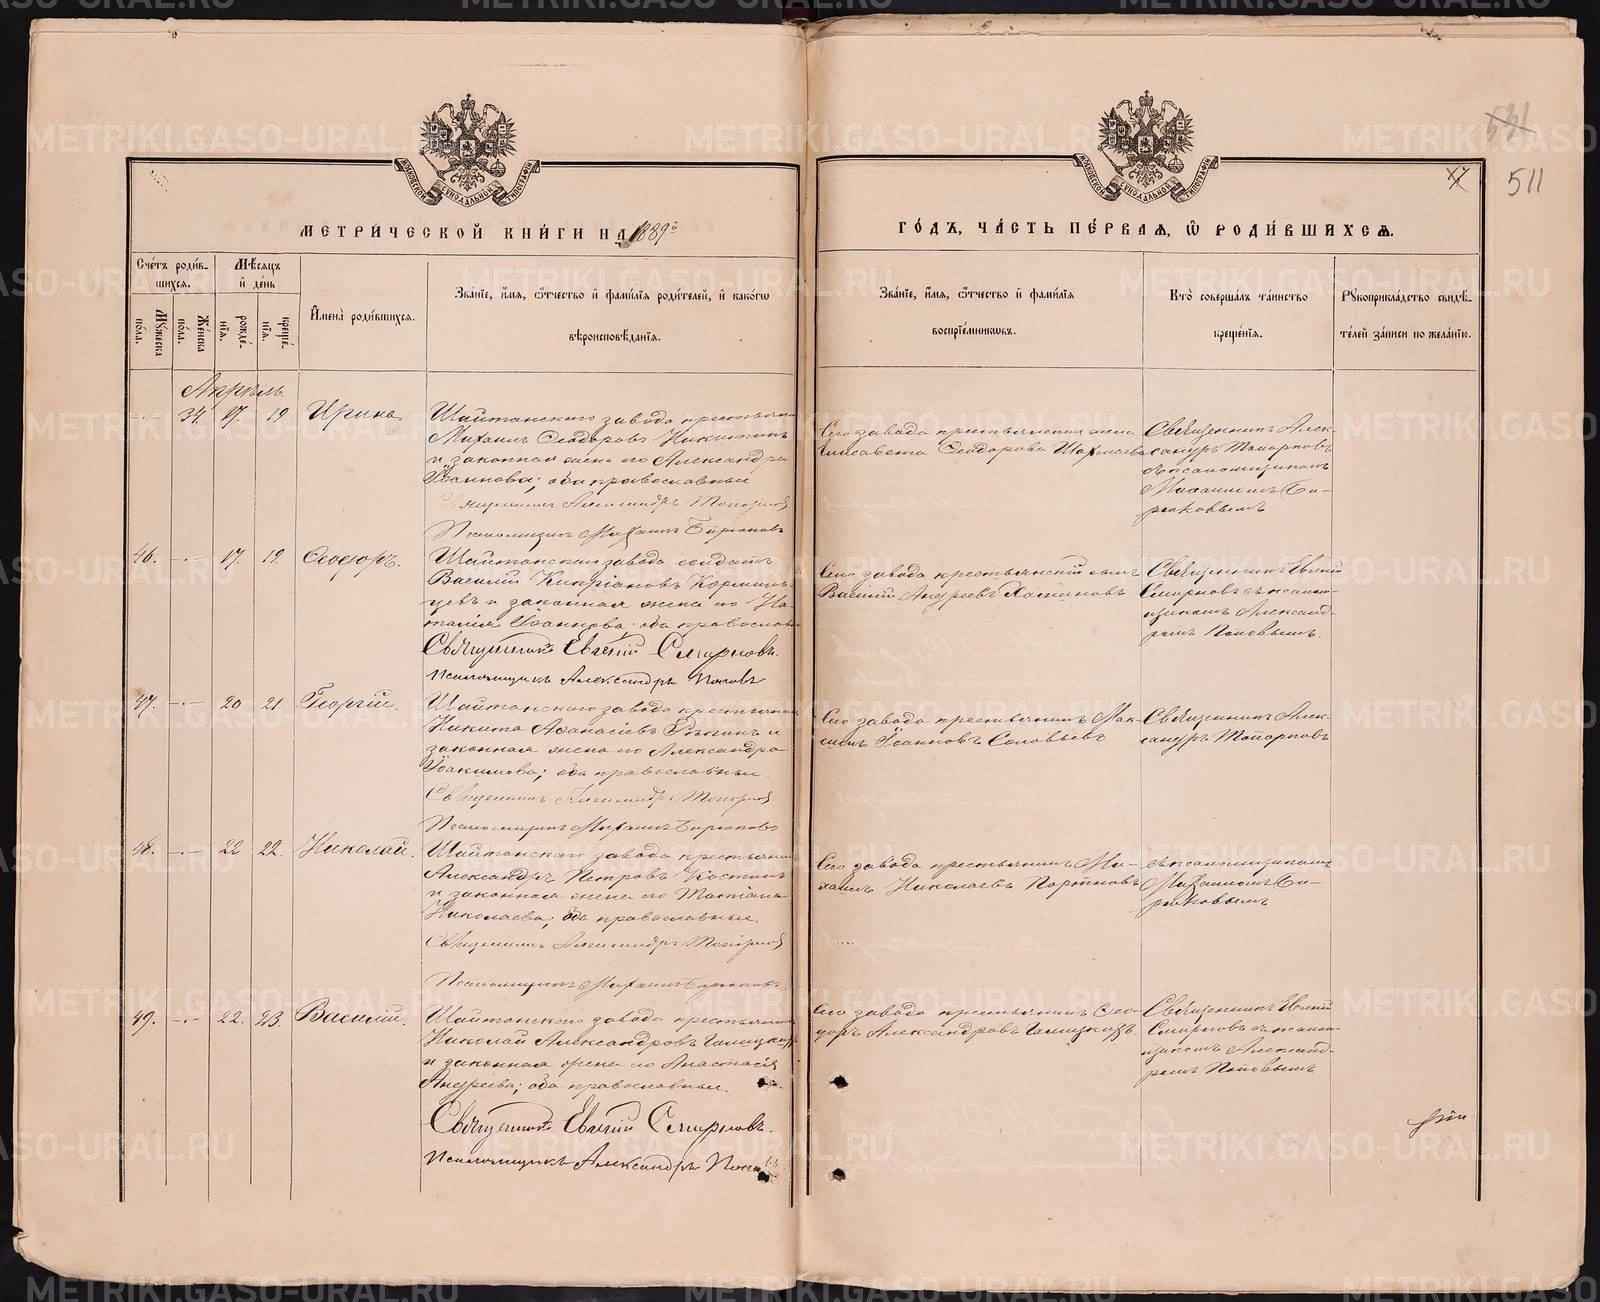 531
511
МОСКОВСКОЙ СѴНОДАЛЬНОЙ ТИПОГРАФІИ
МОСКОВСКОЙ СѴНОДАЛЬНОЙ ТИПОГРАФІИ
МЕТРИ́ЧЕСКОЙ КНИ́ГИ НА 1889й
ГО́ДЪ, ЧА́СТЬ ПЕ́РВАЯ, Ѡ РОДИ́ВШИХСЯ.
Сче́тъ роди́в-
шихся.
Му́жеска по́ла.
Же́нска по́ла.
Мѣ́сяцъ и де́нь
рожде́-нїя.
креще́-нїя.
Имена̀ роди́вшихся.
Зва́нїе, и́мя, ѻ́тчество и фами́лїя роди́телей, и како́гѡ
вѣроисповѣ́данїя.
Зва́нїе, и́мя, ѻ́тчество и фами́лїя
воспрїе́мникѡвъ.
Кто̀ соверша́лъ та́инство
креще́нїя.
Рукоприкла́дство свидѣ́-
телей за́писи по жела́нїю.
Апрѣль
34. 17. 19 Ирина.
Шайтанскаго завода крестьянинъ
Михаилъ Ѳеодоровъ Никитинъ
и законная жена его Александра
Іоаннова; оба православные
Священникъ Александръ Топорковъ
Псаломщикъ Михаилъ Бирюковъ
Сего завода крестьянская жена
Елисавета Ѳеодорова
Священникъ Алек-
сандръ Топорковъ
съ псаломщикомъ
Михаиломъ Би-
рюковымъ
46. 17. 19. Ѳеодоръ.
Шайтанскаго завода солдатъ
Василій Кипріановъ
и законная жена его На-
талія Іоаннова; оба православ
Священникъ Евгеній Смирновъ.
Псаломщикъ Александръ Поповъ
Сего завода крестьянскій сынъ
Василій Андреевъ
Священникъ Евгеній
Смирновъ съ псалом-
щикомъ Александ-
ромъ Поповымъ.
47. 20 21 Георгій.
Шайтанскаго завода крестьянинъ
Никита Аѳанасіевъ
законная жена его Александра
Іоакимова; оба православные.
Священникъ Александръ Топорковъ
Псаломщикъ Михаилъ Бирюковъ
Сего завода крестьянинъ Мак-
симъ Іоанновъ Соловьевъ
Священникъ Алек-
сандръ Топорковъ
48. 22 22. Николай.
Шайтанскаго завода крестьянинъ
Александръ Петровъ Костинъ
и законная жена его Татіана
Николаева; оба православные.
Священникъ Александръ Топорковъ
Псаломщикъ Михаилъ Бирюковъ
Сего завода крестьянинъ Ми-
хаилъ Николаевъ Портновъ
съ псаломщикомъ
Михаиломъ Би-
рюковымъ
49. 22. 23. Василій.
Шайтанскаго завода крестьянинъ
Николай Александровъ Галицкихъ
и законная жена его Анастасія
Андреева; оба православные.
Священникъ Евгеній Смирновъ.
Псаломщикъ Александръ Поповъ
Сего завода крестьянинъ Ѳео-
доръ Александровъ Галицкихъ.
Священникъ Евгеній
Смирновъ съ псалом-
щикомъ Александ-
ромъ Поповымъ
METRIKI.GASO-URAL.RU